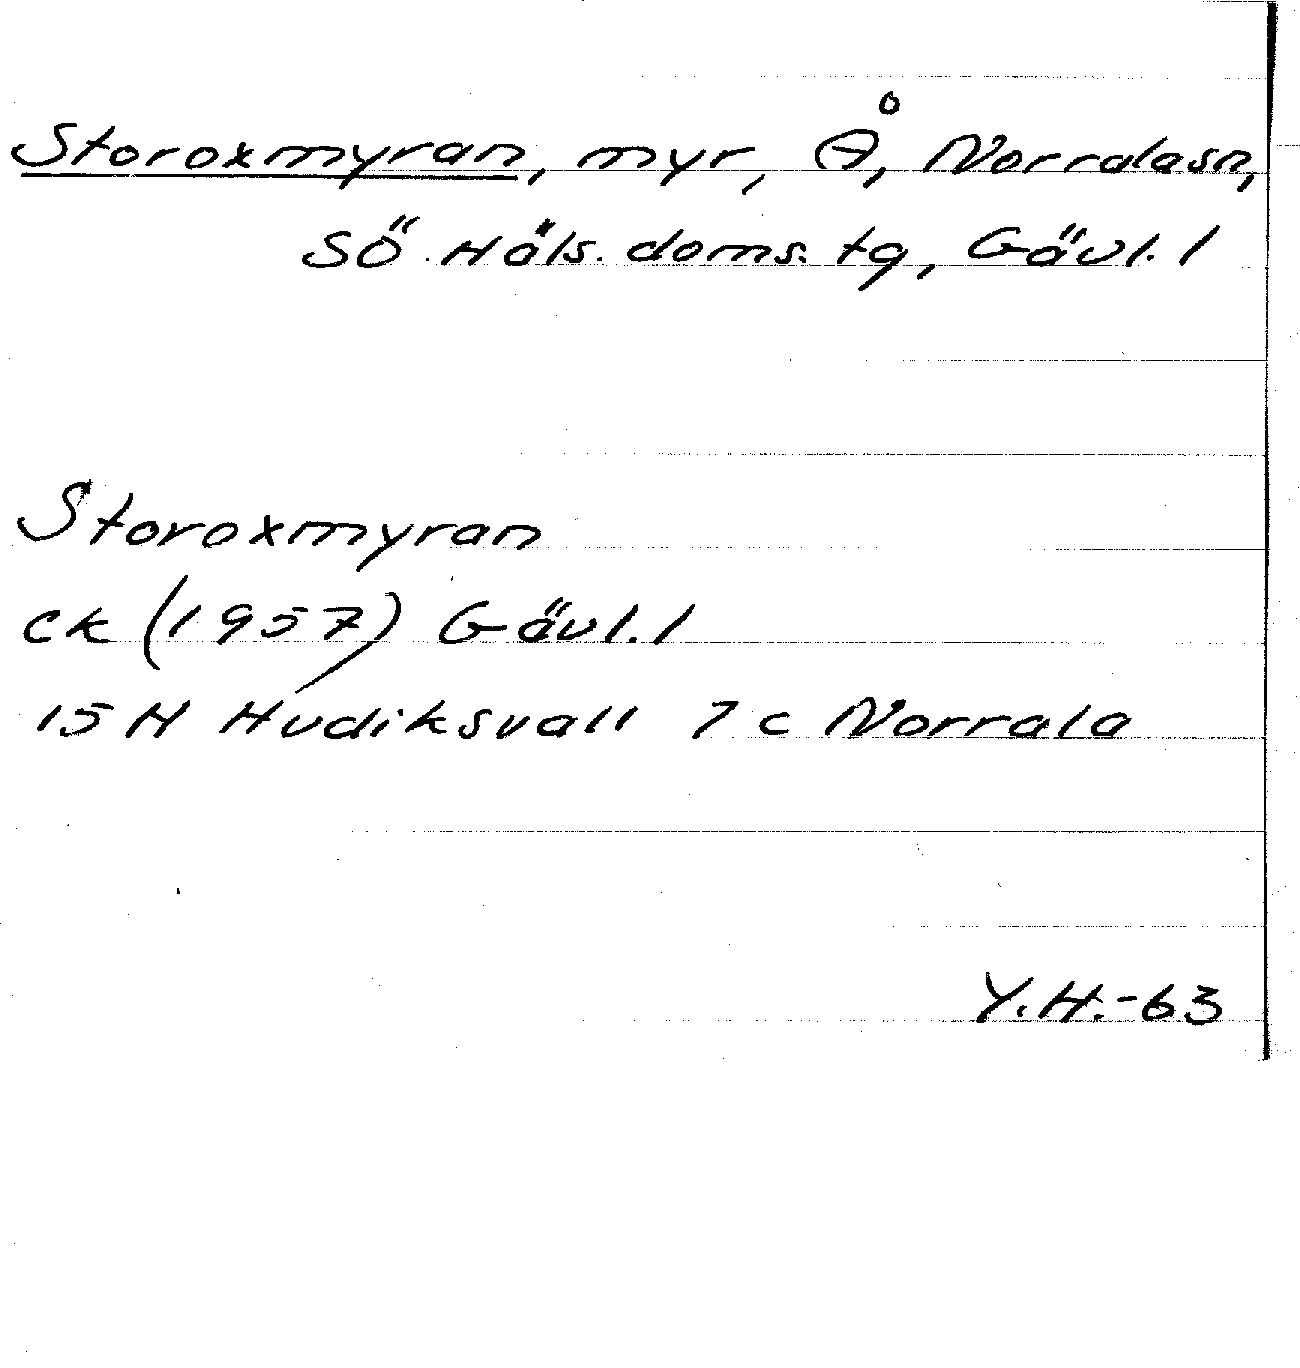 Storoxmyran, myr, Å, Norrala sn,
SÖ Häls. doms. tg, Gävl. l
Storoxmyran
ek (1957) Gävl. l
15 H Hudiksvall 7 c Norrala
Y.H.-63